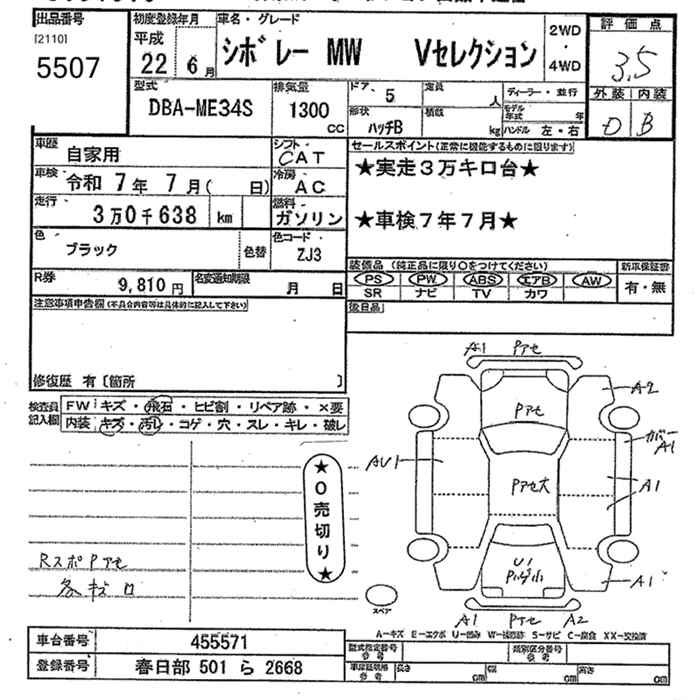 出品番号
[2110]
5507
初度登録年月
平成
22 6月
車名・グレード
シボレー MW Vセレクション
2WD
・
4WD
評価点
3.5
外装 内装
D B
型式
DBA-ME34S
排気量
1300
CC
ドア、5
定員
人
形状
ハッチB
積載
kg
ディーラー・並行
モデル年式
年
ハンドル 左・右
車歴
自家用
シフト
CAT
車検
令和 7年 7月( 日)
冷房
AC
走行
3万0千638 km
燃料
ガソリン
色
ブラック
色替
色コード
ZJ3
R券
9,810円
名変通知期限
月 日
セールスポイント(正常に機能するものに限ります)
★実走3万キロ台★
★車検7年7月★
装備品 (純正品に限り〇をつけてください)
PS PW ABS エアB AW
SR ナビ TV カワ
新車保証書
有・無
後日品
注意事項申告欄(不具合内容等は具体的に記入して下さい)
修復歴 有〔箇所 〕
検査員記入欄
FW キズ・飛石・ヒビ割・リペア跡・×要
内装 キズ・汚レ・コゲ・穴・スレ・キレ・破レ
★0売切り★
RスポPアセ
各キズ
A1 Pアセ
A2
Pアセ
A1
AU1
Pアセ大
A1
U1
A1
A1 Pアセ A2
スペア
A-キズ E-エクボ U-凹み W-補修跡 S-サビ C-腐食 XX-交換済
車台番号
455571
登録番号
春日部 501 ら 2668
型式指定番号
参考
類別区分番号
参考
車庫証明用
参考
長さ cm
幅 cm
高さ cm